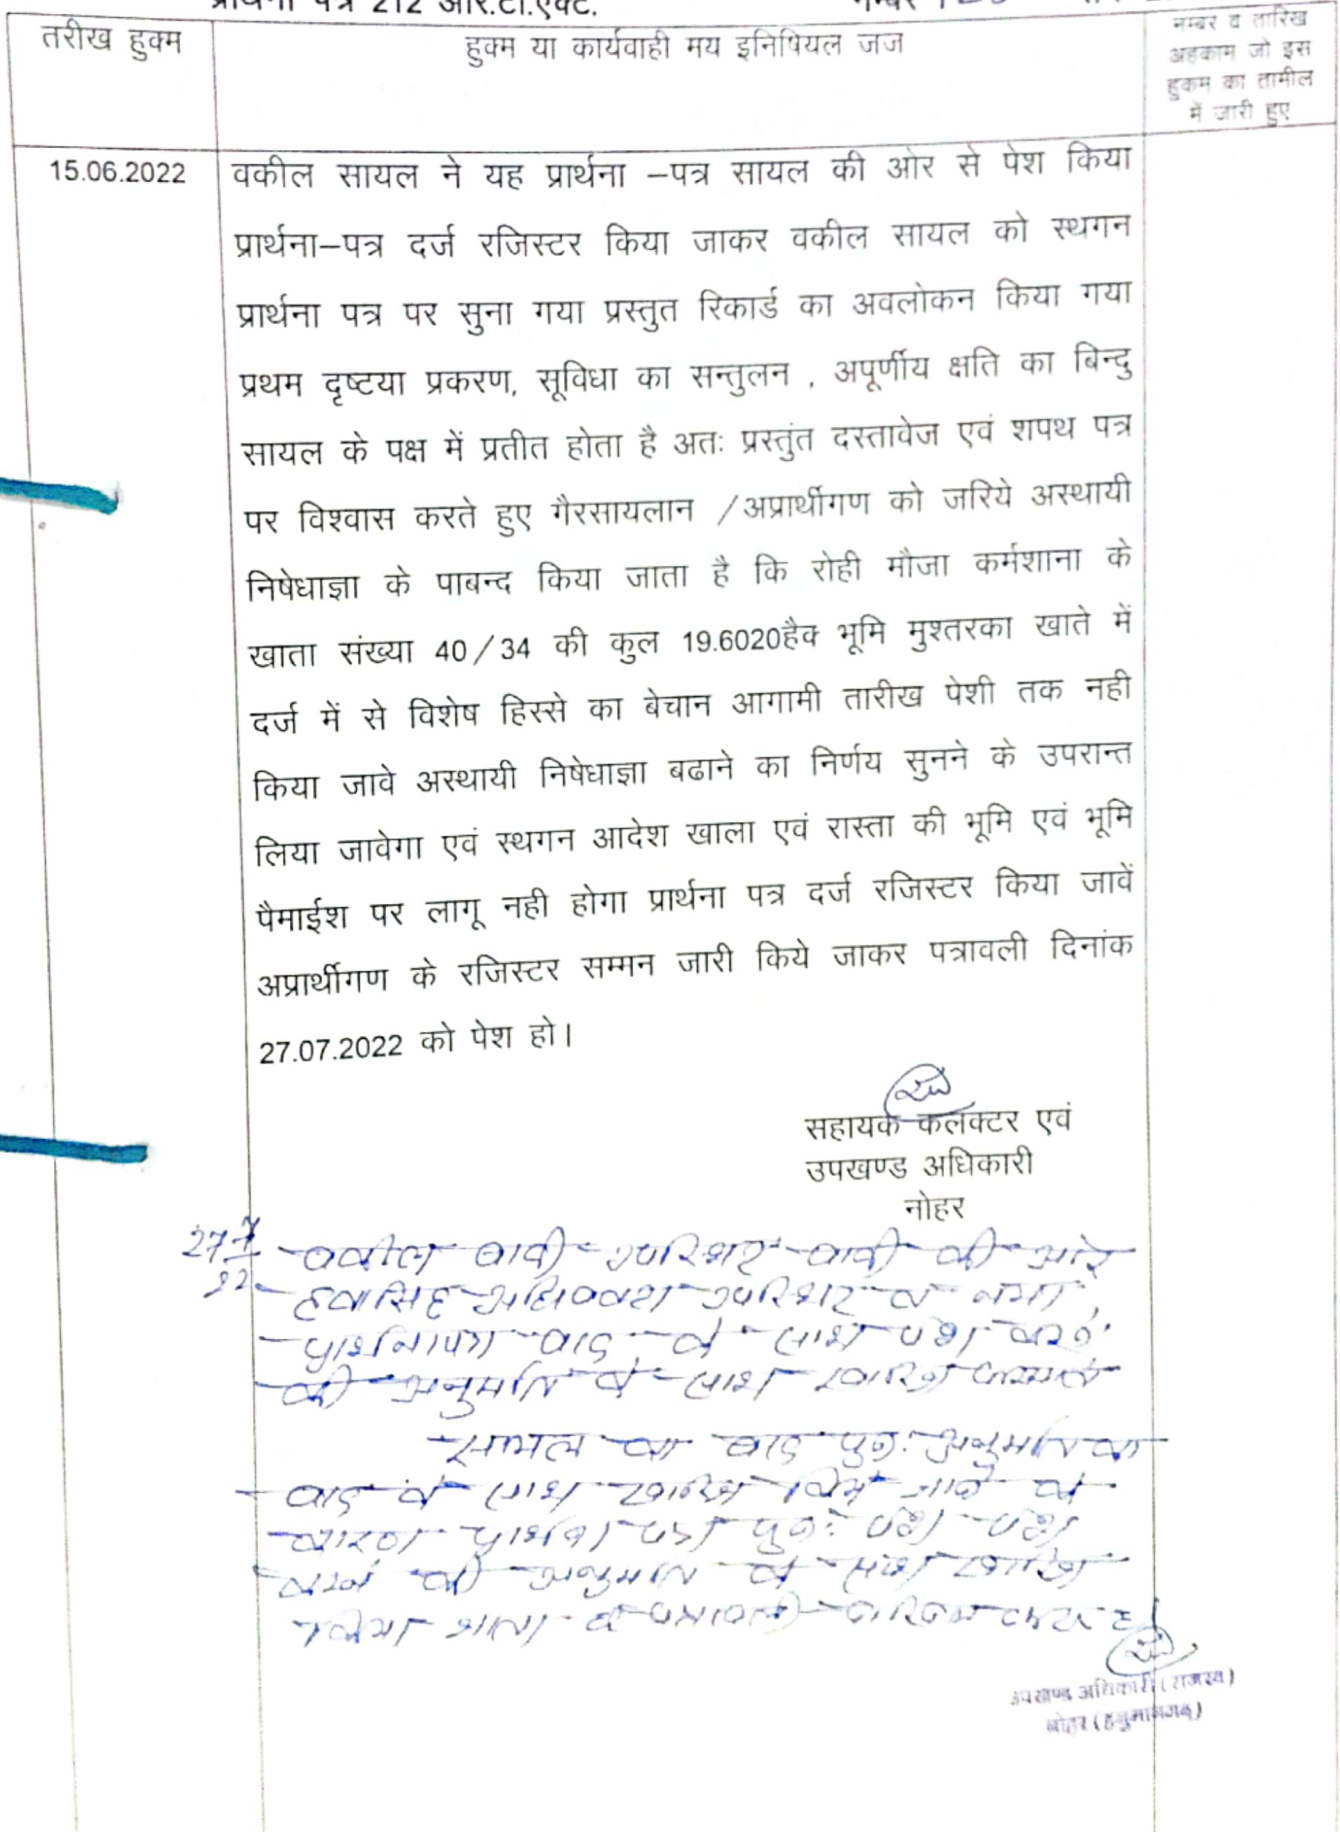 प्रार्थना पत्र 212 आर.टी.एक्ट. नम्बर
तरीख हुक्म
हुक्म या कार्यवाही मय इनिषियल जज
नम्बर व तारिख
अहकाम जो इस
हुकम का तामील
में जारी हुए
15.06.2022
वकील सायल ने यह प्रार्थना –पत्र सायल की ओर से पेश किया
प्रार्थना–पत्र दर्ज रजिस्टर किया जाकर वकील सायल को स्थगन
प्रार्थना पत्र पर सुना गया प्रस्तुत रिकार्ड का अवलोकन किया गया
प्रथम दृष्टया प्रकरण, सूविधा का सन्तुलन , अपूर्णीय क्षति का बिन्दु
सायल के पक्ष में प्रतीत होता है अतः प्रस्तुंत दस्तावेज एवं शपथ पत्र
पर विश्वास करते हुए गैरसायलान /अप्रार्थीगण को जरिये अस्थायी
निषेधाज्ञा के पाबन्द किया जाता है कि रोही मौजा कर्मशाना के
खाता संख्या 40/34 की कुल 19.6020हैक्‍ भूमि मुश्तरका खाते में
दर्ज में से विशेष हिस्से का बेचान आगामी तारीख पेशी तक नही
किया जावे अस्थायी निषेधाज्ञा बढाने का निर्णय सुनने के उपरान्त
लिया जावेगा एवं स्थगन आदेश खाला एवं रास्ता की भूमि एवं भूमि
पैमाईश पर लागू नही होगा प्रार्थना पत्र दर्ज रजिस्टर किया जावें
अप्रार्थीगण के रजिस्टर सम्मन जारी किये जाकर पत्रावली दिनांक
27.07.2022 को पेश हो।
सहायक कलक्टर एवं
उपखण्ड अधिकारी
नोहर
27 7
22
वकील वादी उपस्थित वादी की ओर
हवासिंह अधिवक्ता उपस्थित
प्रार्थनापत्र वाद के साथ पेश करने
की अनुमति के साथ खारिज
का वाद पुनः अनुमति
वाद के साथ खारिज किये जाने के
कारण प्रार्थना पत्र पुनः पेश
करने की अनुमति के साथ खारिज
किया जाता है पत्रावली
उपखण्ड अधिकारी (राजस्व)
नोहर (हनुमानगढ़)